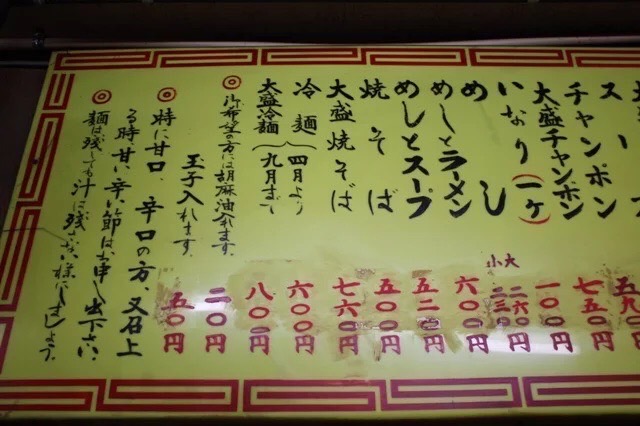 スープ
チャンポン 五九〇円
大盛チャンポン 七五〇円
いなり(一ケ) 一〇〇円
めし 大 二六〇円
小 二三〇円
めしとラーメン 六〇〇円
めしとスープ 五二〇円
焼そば 五〇〇円
大盛焼そば 七六〇円
冷麺 六〇〇円
大盛冷麺 八〇〇円
四月より
九月まで
◎御希望の方には胡麻油入れます。 二〇円
玉子入れます。 五〇円
◎特に甘口、辛口の方、又召上
る時甘い、辛い節はお申し出下さい。
◎麺は残しても汁は残さない様にしましょう。